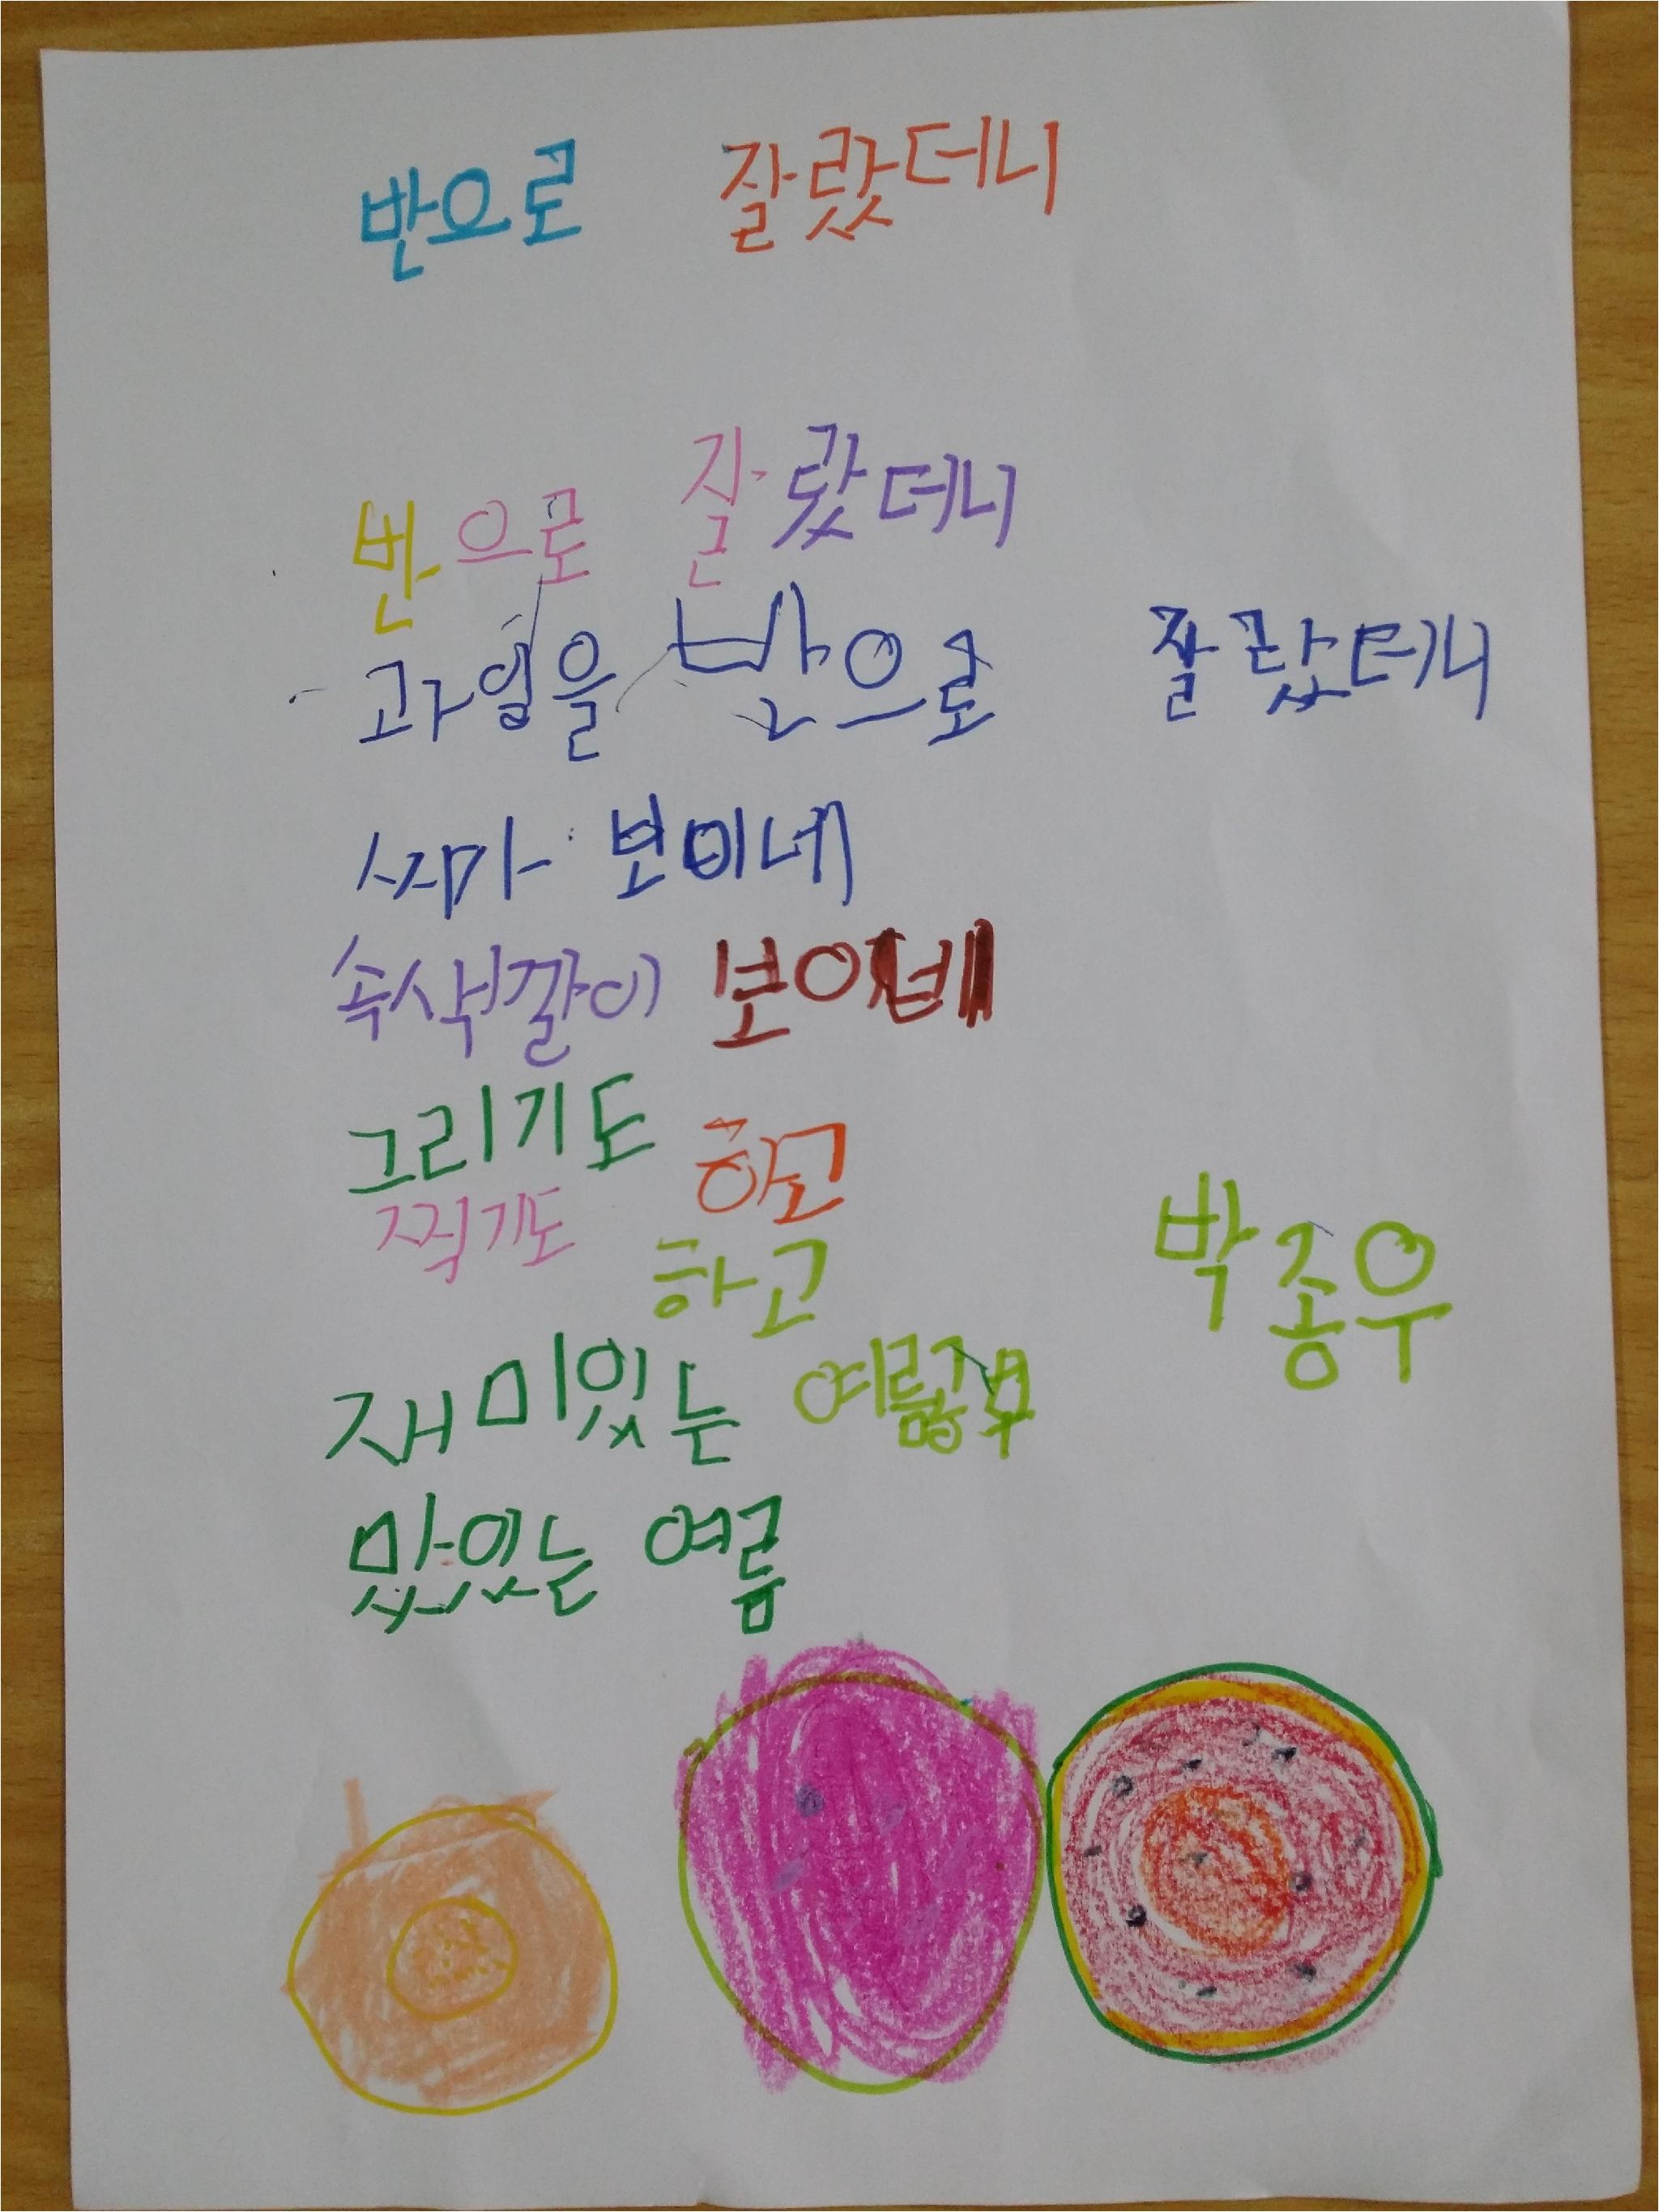 반으로 잘랐더니
반으로 잘랐더니
과일을 반으로 잘랐더니
씨가 보이네
속색깔이 보이네
그리기도 하고
찍기도 하고
박종우
재미있는 여름공부
맛있는 여름